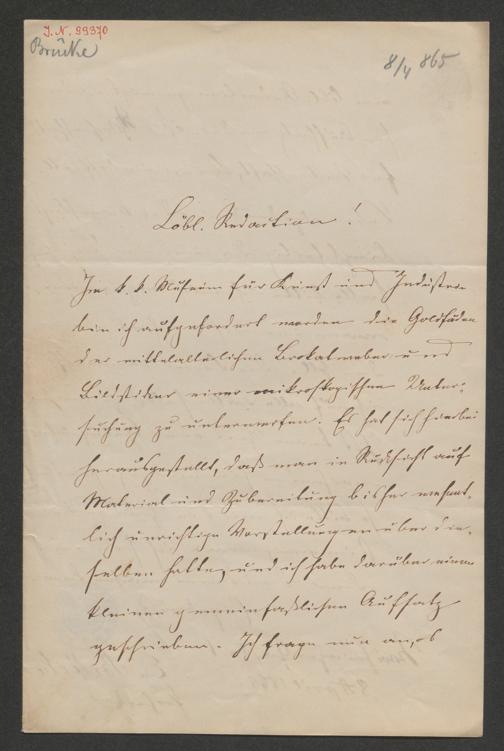 J. N. 99370
Brücke
8/4 865
Löbl. Redaction!
Im k. k. Museum für Kunst und Industrie
bin ich aufgefordert worden die Goldfäden
der mittelalterlichen Brokatweber und
Bildsticker einer mikroskopischen Unter-
suchung zu unterwerfen. Es hat sich hierbei
herausgestellt, daß man in Rücksicht auf
Material und Zubereitung bisher wesent-
lich unrichtige Vorstellungen über die-
selben hatte, und ich habe darüber einen
kleinen gemeinfaßlichen Aufsatz
geschrieben. Ich frage nun an, ob